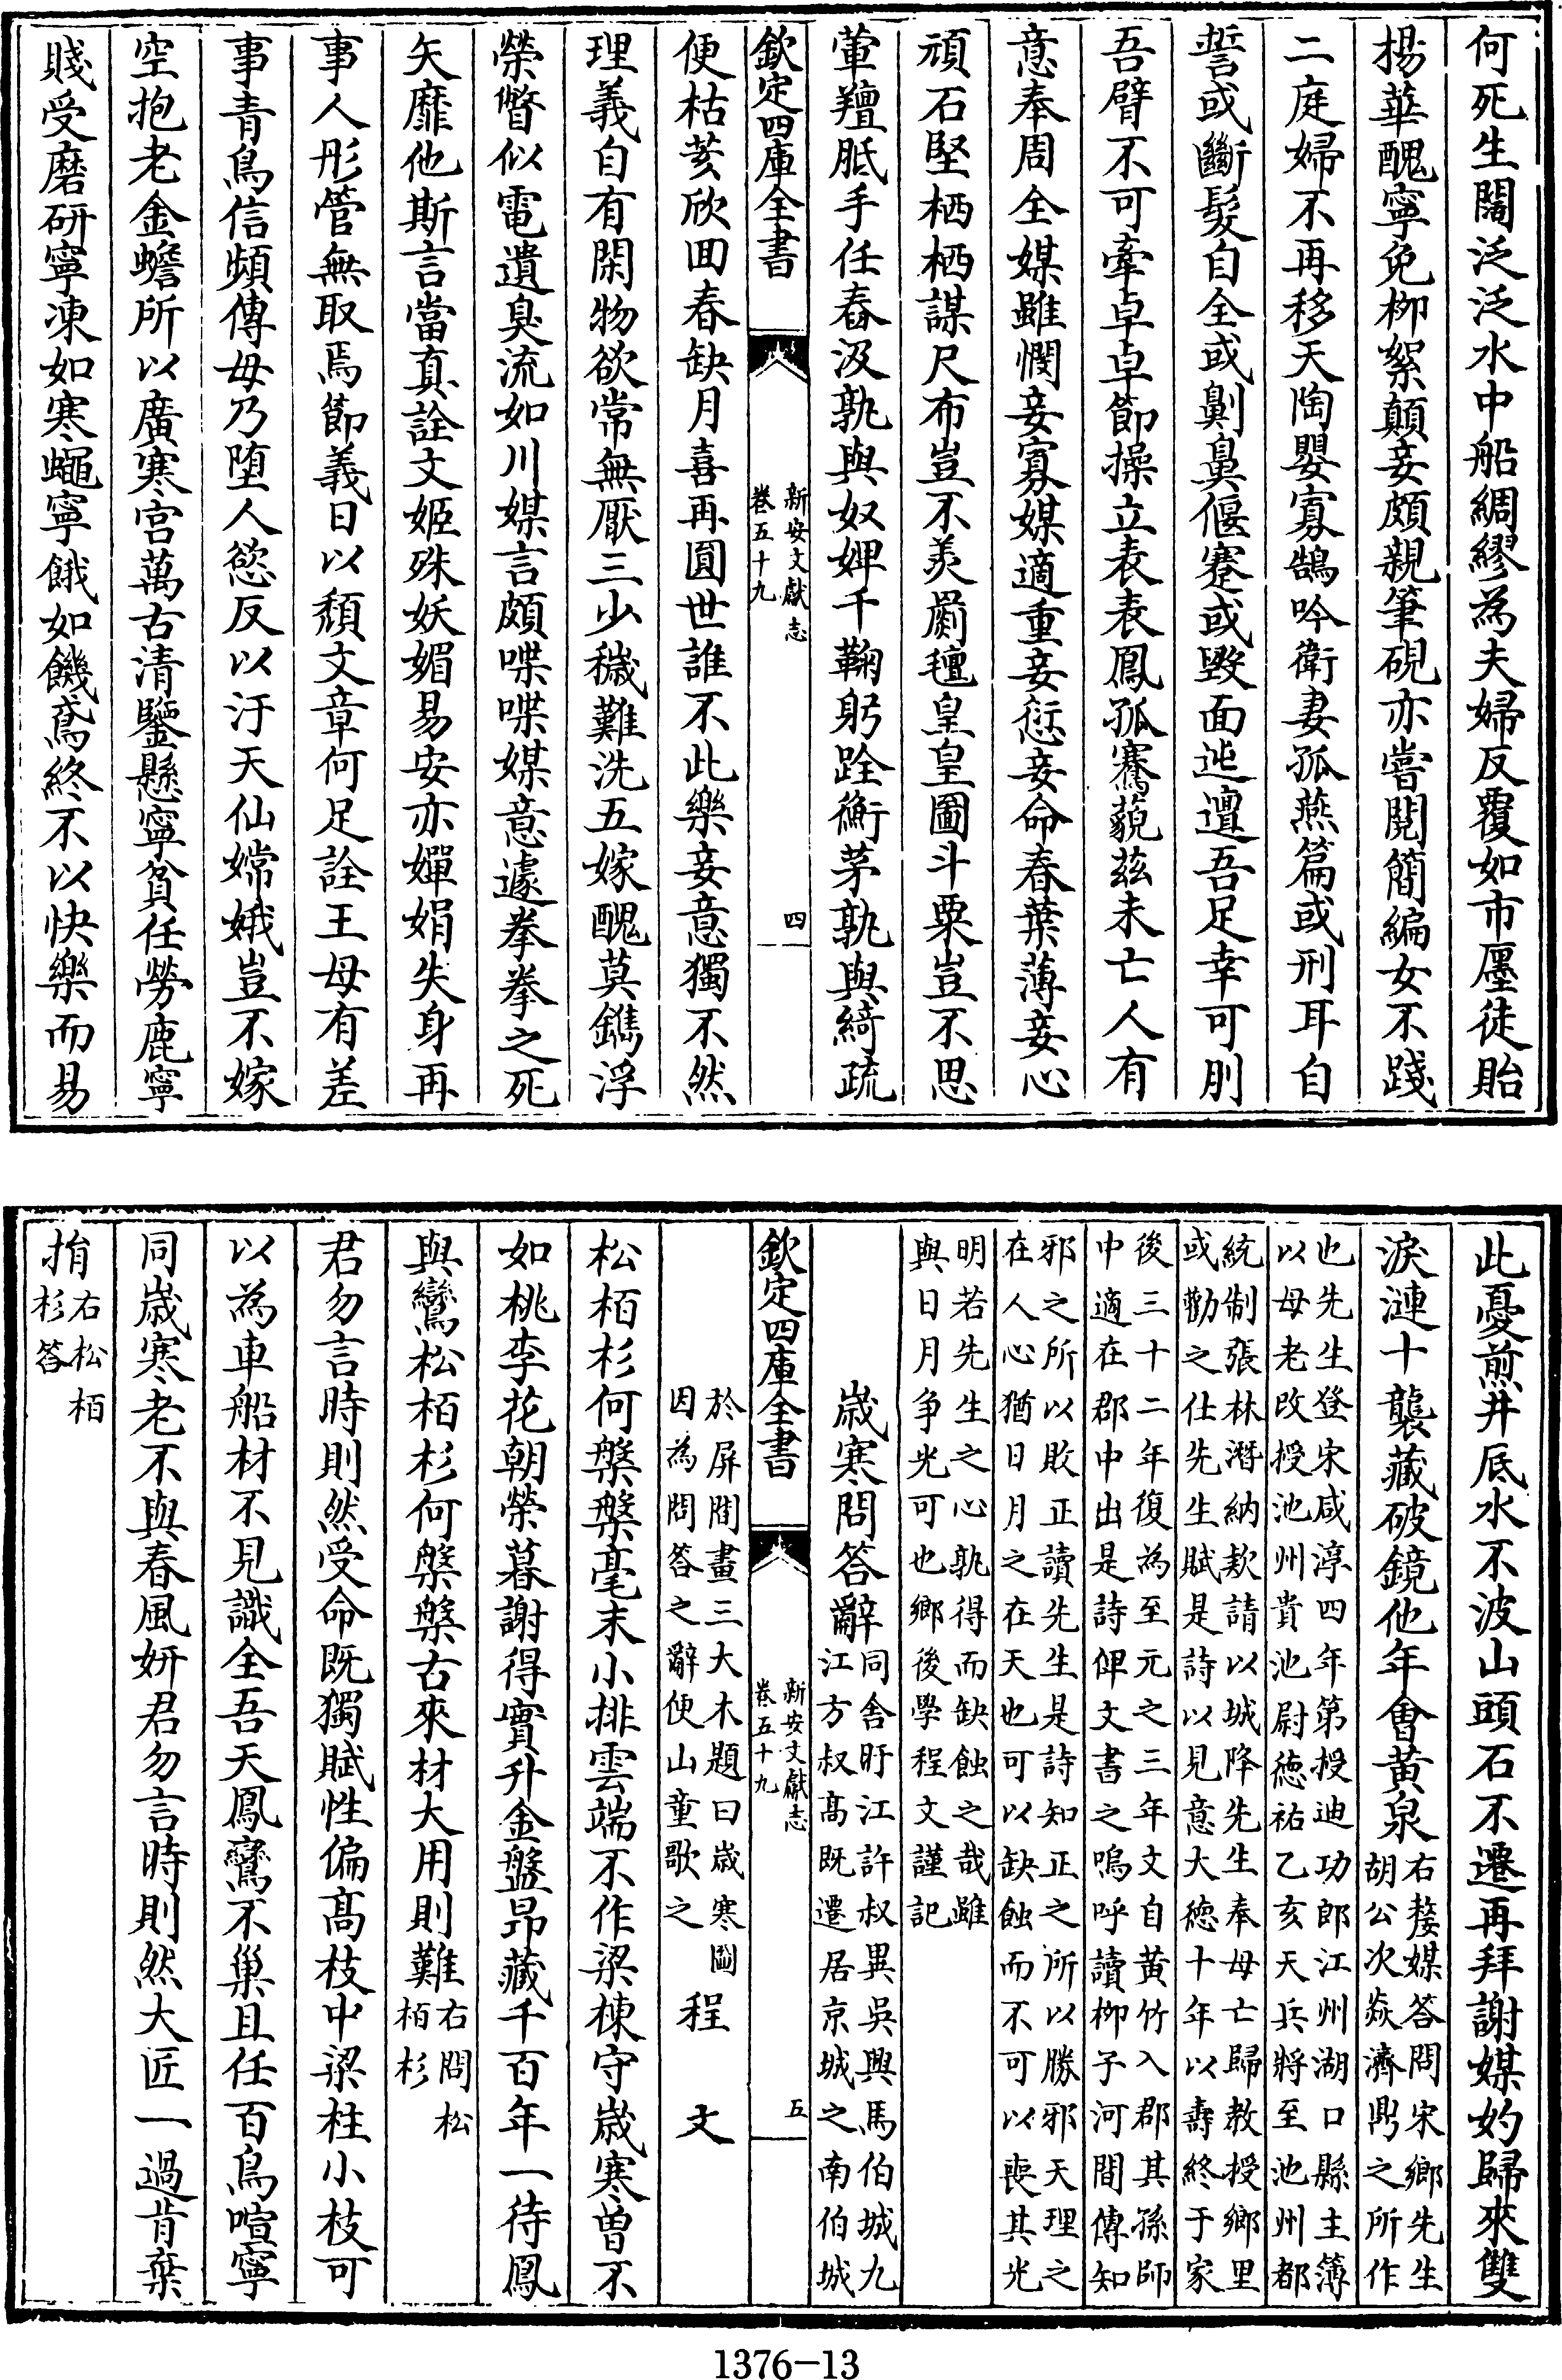 何死生闊泛泛水中船綢繆為夫婦反覆如市㕓徒貽
揚華醜寧免柳絮顛妾頗親筆硯亦嘗閱簡編女不踐
二庭婦不再移天陶嬰寡鵠吟衛妻孤燕篇或刑耳自
誓或斷髮自全或劓鼻偃蹇或毁面迍邅吾足幸可刖
吾臂不可牽卓卓節操立表表鳳孤騫藐兹未亡人有
意奉周全媒雖憫妾寡媒適重妾愆妾命春葉薄妾心
頑石堅栖栖謀尺布豈不羨罽氊皇皇圖斗粟豈不思
葷羶胝手任舂汲孰與奴婢千鞠躬跧衡茅孰與綺疏
欽定四庫全書
新安文獻志
卷五十九
四
便枯荄欣回春缺月喜再圓世誰不此樂妾意獨不然
理義自有閑物欲常無厭三少穢難洗五嫁醜莫鐫浮
榮瞥似電遺臭流如川媒言頗喋喋媒意遽拳拳之死
矢靡他斯言當真詮文姬殊妖媚易安亦嬋娟失身再
事人彤管無取焉節義日以頽文章何足詮王母有差
事青鳥信頻傳毋乃墮人慾反以汙天仙嫦娥豈不嫁
空抱老金蟾所以廣寒宫萬古清鑒懸寧貧任勞鹿寧
賤受磨研寧凍如寒蠅寧餓如饑鳶終不以快樂而易
此憂煎井底水不波山頭石不遷再拜謝媒妁歸來雙
淚漣十襲藏破鏡他年會黄泉右嫠媒答問宋鄉先生
胡公次焱濟鼎之所作
也先生登宋咸淳四年第授迪功郎江州湖口縣主簿
以母老改授池州貴池尉德祐乙亥天兵將至池州都
統制張林潛納欵請以城降先生奉母亡歸教授鄉里
或勸之仕先生賦是詩以見意大德十年以壽終于家
後三十二年復為至元之三年文自黄竹入郡其孫師
中適在郡中出是詩俾文書之嗚呼讀柳子河間傳知
邪之所以敗正讀先生是詩知正之所以勝邪天理之
在人心猶日月之在天也可以缺蝕而不可以喪其光
明若先生之心孰得而缺蝕之哉雖
與日月争光可也鄉後學程文謹記
歲寒問答辭同舍旴江許叔異吳興馬伯城九
江方叔高既遷居京城之南伯城
欽定四庫全書
新安文獻志
卷五十九
五
於屏間畫三大木題曰歲寒圖
因為問答之辭使山童歌之
程文
松栢杉何槃槃毫末小排雲端不作梁棟守歲寒曽不
如桃李花朝榮暮謝得實升金盤昂藏千百年一待鳳
與鸞松栢杉何槃槃古來材大用則難右問松
栢杉
君勿言時則然受命既獨賦性偏高枝中梁柱小枝可
以為車船材不見識全吾天鳳鸞不巢且任百鳥喧寧
同歲寒老不與春風妍君勿言時則然大匠一過肯棄
捐右松栢
杉答
1376-13